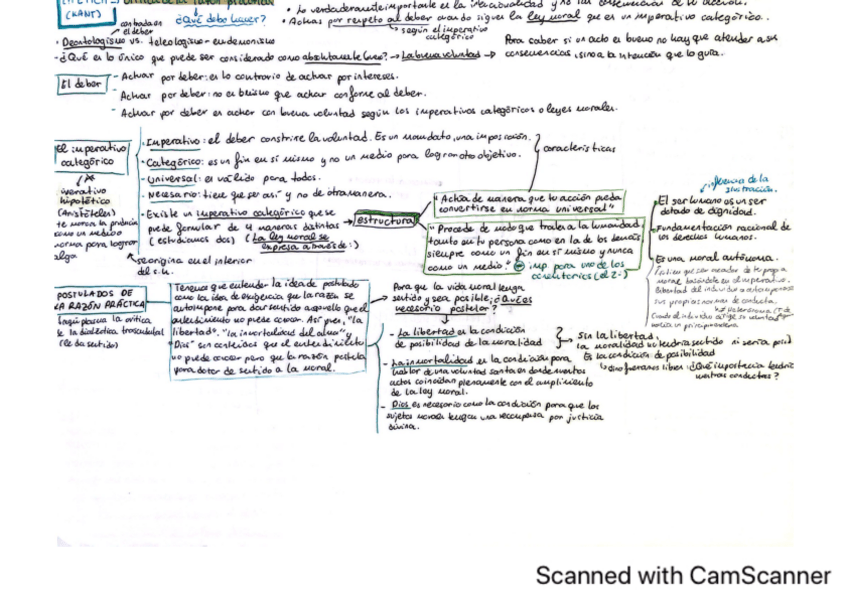 (KANT)
centrada en el deber
¿Qué debo hacer?
• Lo verdaderamente importante es la
• Actuas por respeto al deber cuando sigues la ley moral que es un imperativo categórico.
según el imperativo categórico
• Deontologismo vs. teleologismo - eudemonismo
- ¿Qué es lo único que puede ser considerado como → La buena voluntad →
Para saber si un acto es bueno no hay que atender a sus
consecuencias, sino a la intención que lo guía.
El deber
- Actuar por deber: es lo contrario de actuar por intereses.
- Actuar por deber: no es lo mismo que actuar conforme al deber.
- Actuar por deber es actuar con buena voluntad según los imperativos categóricos o leyes morales.
El imperativo
categórico
≠
imperativo
hipotético
(Aristóteles)
como un medio
norma para lograr
algo
- Imperativo: el deber constriñe la voluntad. Es un mandato, una imposición.
- Categórico: es un fin en si mismo y no un medio para lograr otro objetivo.
- Universal: es válido para todos.
- Necesario: tiene que ser así y no de otra manera.
características
- Existe un imperativo categórico que se
puede formular de 4 maneras distintas
(estudiamos dos) (La ley moral se
expresa a través de:)
se origina en el interior
del s.h.
estructura
"Actúa de manera que tu acción pueda
convertirse en norma universal"
"Procede de modo que trates a la humanidad,
tanto en tu persona como en la de los demás
siempre como un fin en si mismo y nunca
como un medio."
imp para uno de los
comentarios (el 2-)
influencia de la
ilustración.
El ser humano es un ser
dotado de dignidad.
Fundamentación racional de
los derechos humanos.
Es una moral autónoma.
sus propias normas de conducta.
≠ Heteronoma
POSTULADOS DE
LA RAZÓN PRÁCTICA
Kant plasma la crítica
a la dialéctica trascendental
(le da sentido)
Tenemos que entender la idea de postulado
como la idea de exigencia que la razón se
autoimpone para dar sentido a aquello que el
entendimiento no puede conocer. Así pues, "la
libertad", "la inmortalidad del alma" y
"Dios" son contenidos que el entendimiento
no puede conocer pero que la razón postula
para dotar de sentido a la moral.
Para que la vida moral tenga
sentido y sea posible, ¿Qué es
necesario postular?
- La libertad es la condición
de posibilidad de la moralidad
sin la libertad,
la moralidad no tendría sentido ni sería posi
Es la condición de posibilidad
si no fueramos libres ¿Qué importancia tendría
nuestras conductas?
- La inmortalidad es la condición para
hablar de una voluntad santa en donde nuestros
actos coincidan plenamente con el cumplimiento
de la ley moral.
- Dios es necesario como la condición para que los
sujetos morales tengan una recompensa por justicia
divina.
Scanned with CamScanner